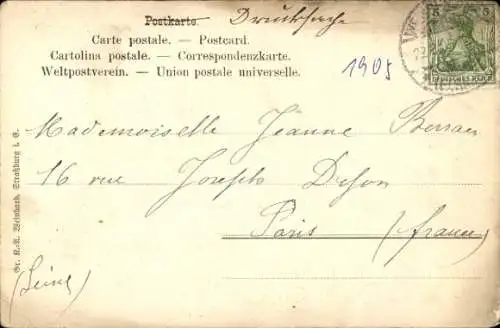 Postkarte. Drucksache
Carte postale. — Postcard.
Cartolina postale. — Correspondenzkarte.
Weltpostverein. — Union postale universelle.
1905
5 5
DEUTSCHES REICH
Mademoiselle Jeanne
16 rue Joseph Dijon
Paris (France)
(Seine)
Gr. K.-A. Weinhard, Straßburg i. E.